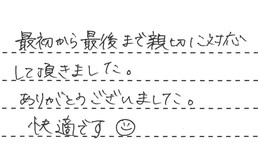 最初から最後まで親切に対応
して頂きました。
ありがとうございました。
快適です☺